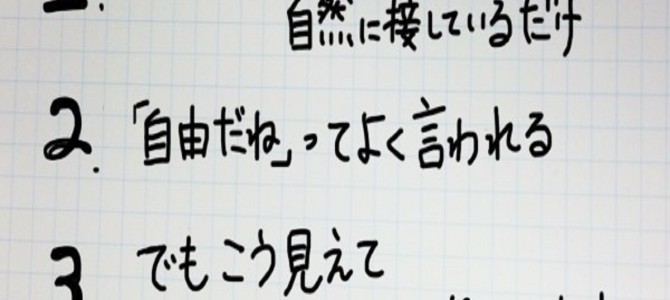 自然に接しているだけ
2. 「自由だね」ってよく言われる
3 でもこう見えて